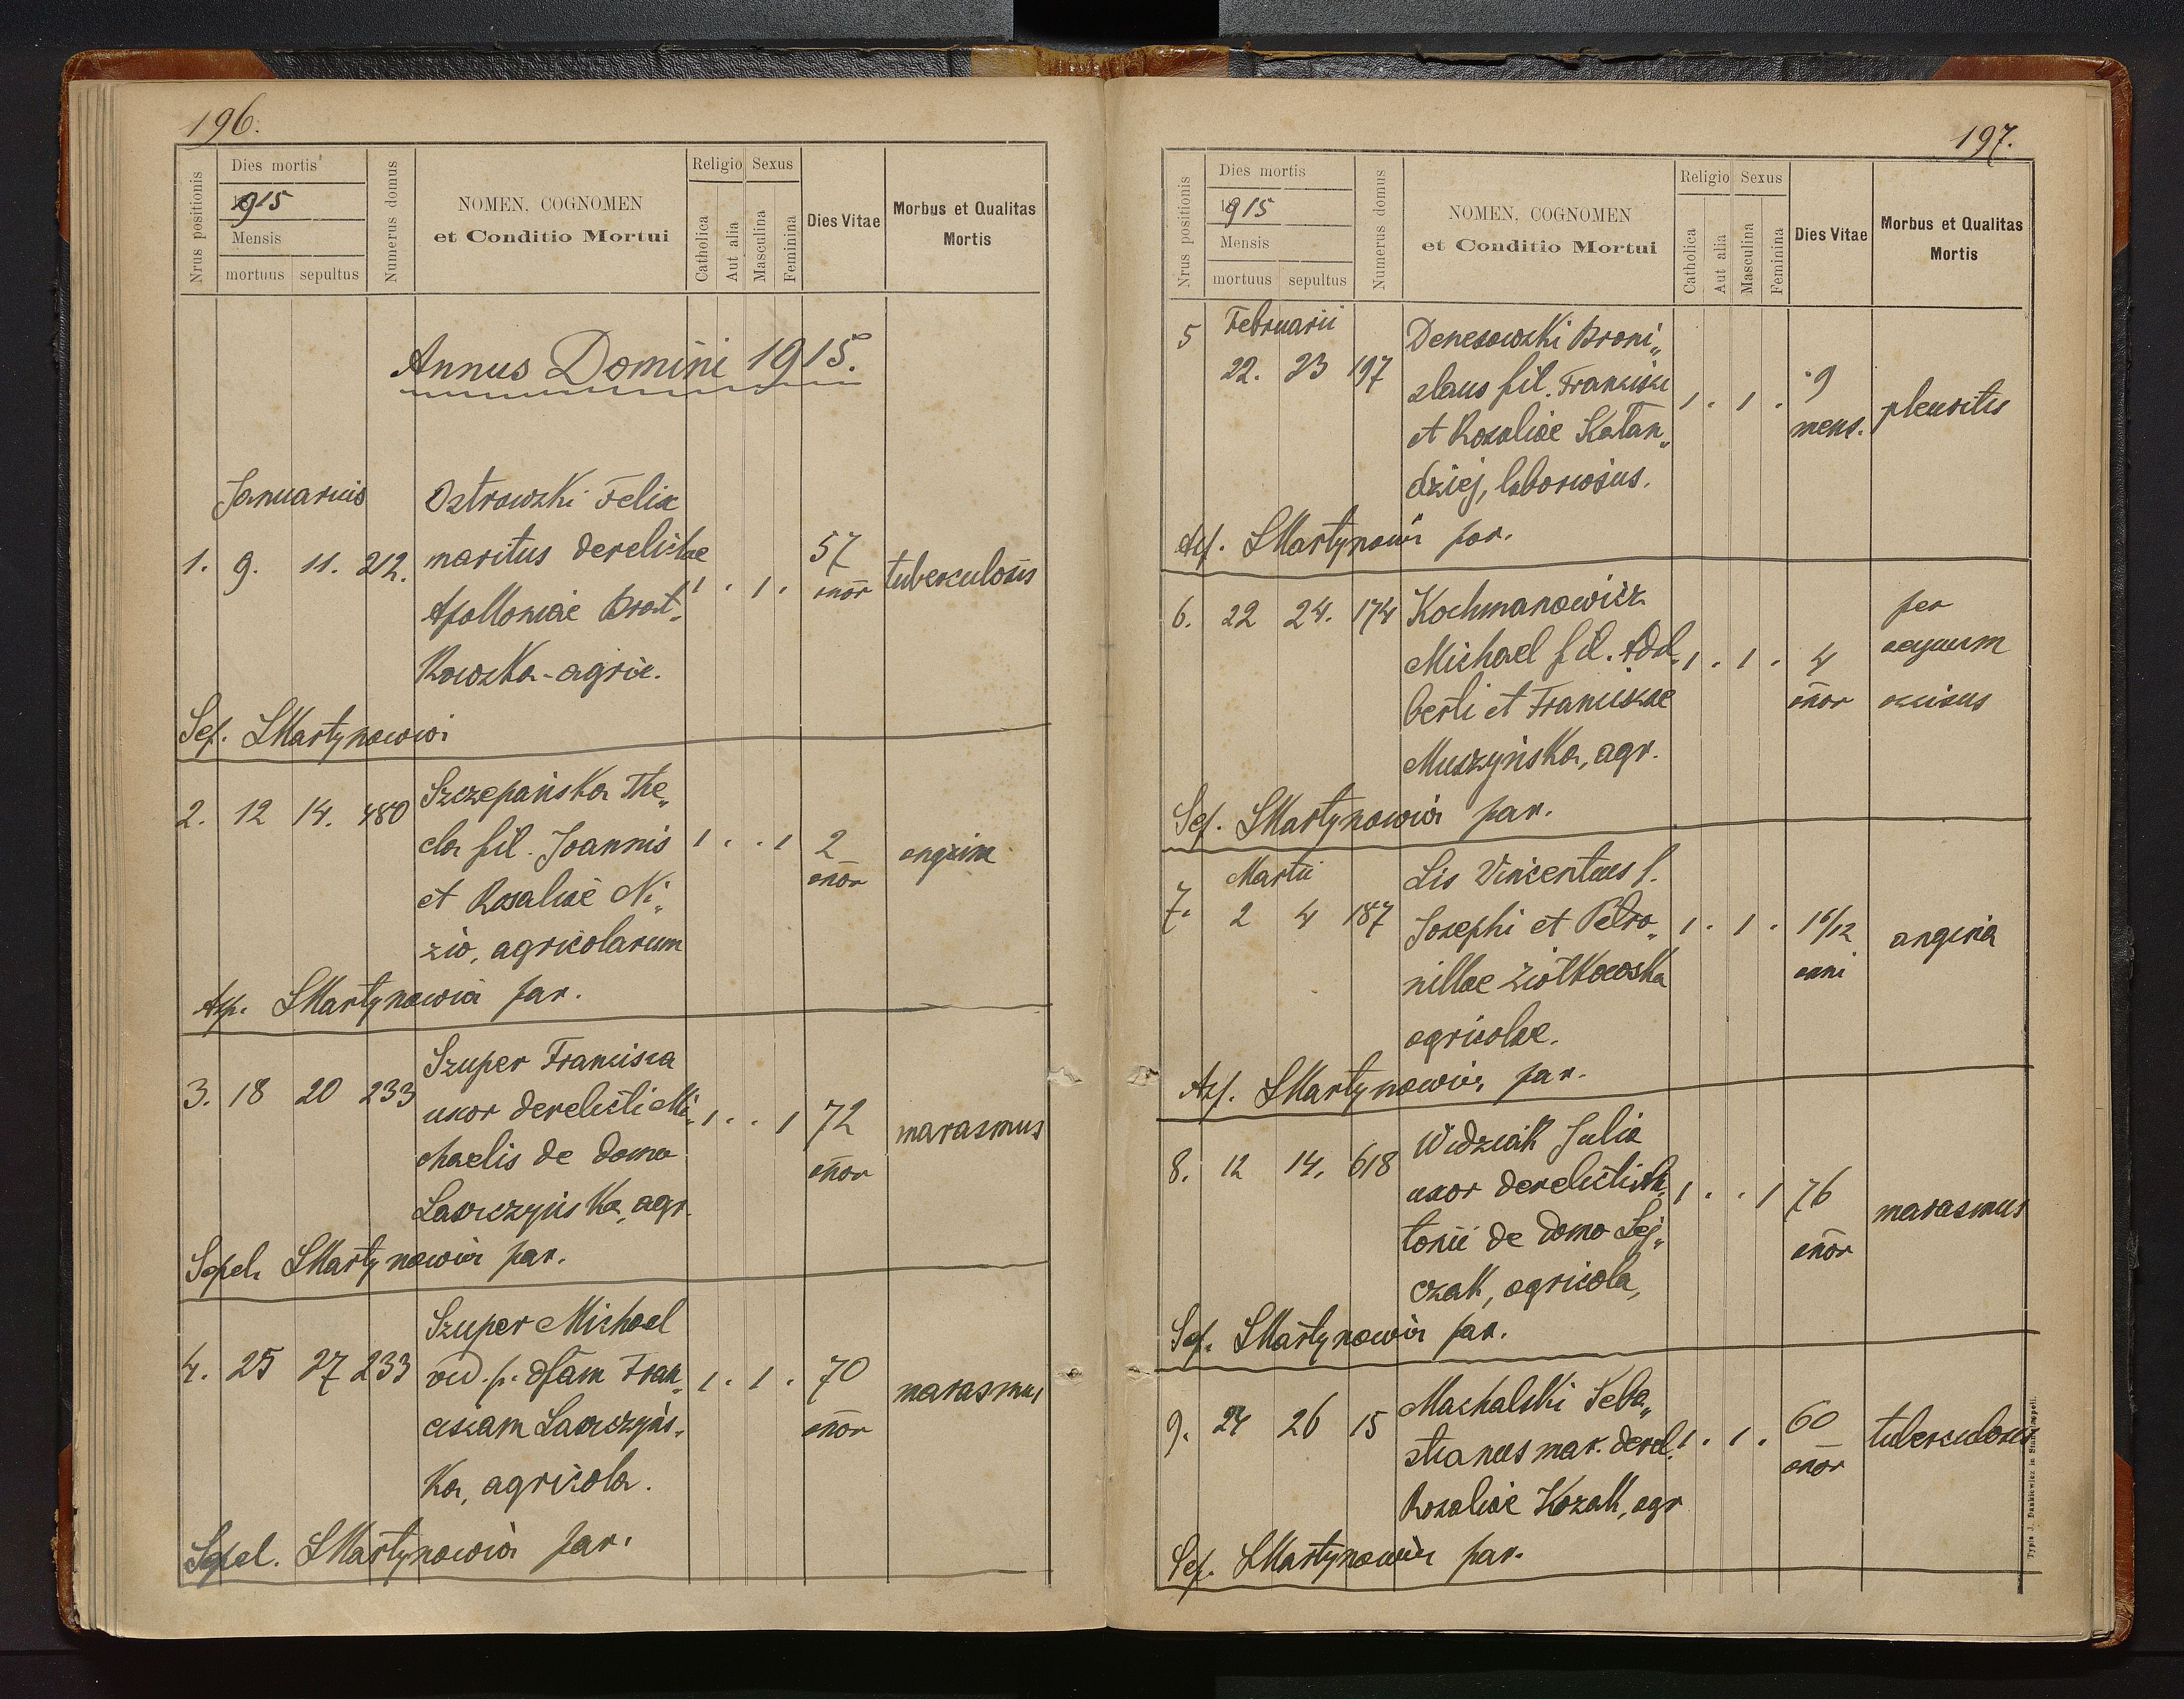 196.
Nrus positionis
Dies mortis
1915
Mensis
mortuus sepultus
Numerus domus
NOMEN, COGNOMEN
et Conditio Mortui
Religio Sexus
Catholica
Aut alia
Masculina
Feminina
Dies Vitae
Morbus et Qualitas
Mortis
Annus Domini 1915.
Januarius
Ostrowski Felix
1. 9. 11. 212. maritus derelictae 1 . 1 . 57 annor tuberculosis
Apolloniae Brat„
kowska - agric.
Sep. SMartynowicz
2. 12 14. 480 Szczepańska The„
cla fil. Joannis 1 . . 1 2 annor angina
et Rosaliae Ni„
zio, agricolarum
Asp. SMartynowicz par.
Szuper Francisca
3. 18 20 233 uxor derelicti Mi„ 1 . . 1 72 annor marasmus
chaelis de domo
Lawrzyńska, agr.
Sepel. SMartynowicz par.
Szuper Michael
4. 25 27 233 vid. p. dfam Fran„ 1 . 1 . 70 annor marasmus
ciscam Lawrzyńs„
ka, agricola.
Sepel. SMartynowicz par.
197.
Nrus positionis
Dies mortis
1915
Mensis
mortuus sepultus
Numerus domus
NOMEN, COGNOMEN
et Conditio Mortui
Religio Sexus
Catholica
Aut alia
Masculina
Feminina
Dies Vitae
Morbus et Qualitas
Mortis
5 Februarii Denesowski Broni„
22. 23 197 slaus fil. Francisci 1 . 1 . 9 mens. pleuritis
et Rosaliae Katan„
dziej,
Asp. SMartynowicz par.
6. 22 24. 174 Kochmanowicz
Michael fil. Adal„ 1 . 1 . 4 annor per
berti et Franciscae occisus
Muszyńska, agr.
Sep. SMartynowicz par.
Martii Lis Vincentius f.
7. 2 4 187 Josephi et Petro„ 1 . 1 . 1 6/12 anni angina
nillae Ziółkowska
agricolae.
Asp. SMartynowicz par.
Widziak Julia
8. 12 14. 618 uxor derelicti An„ 1 . . 1 76 annor marasmus
tonii de domo Lej„
czak, agricola,
Sep. SMartynowicz par.
Machalski Seba„
9. 24 26 15 stianus mar. derel. 1 . 1 . 60 annor tuberculosis
Rosaliae Kozak, agr
Sep. SMartynowicz par.